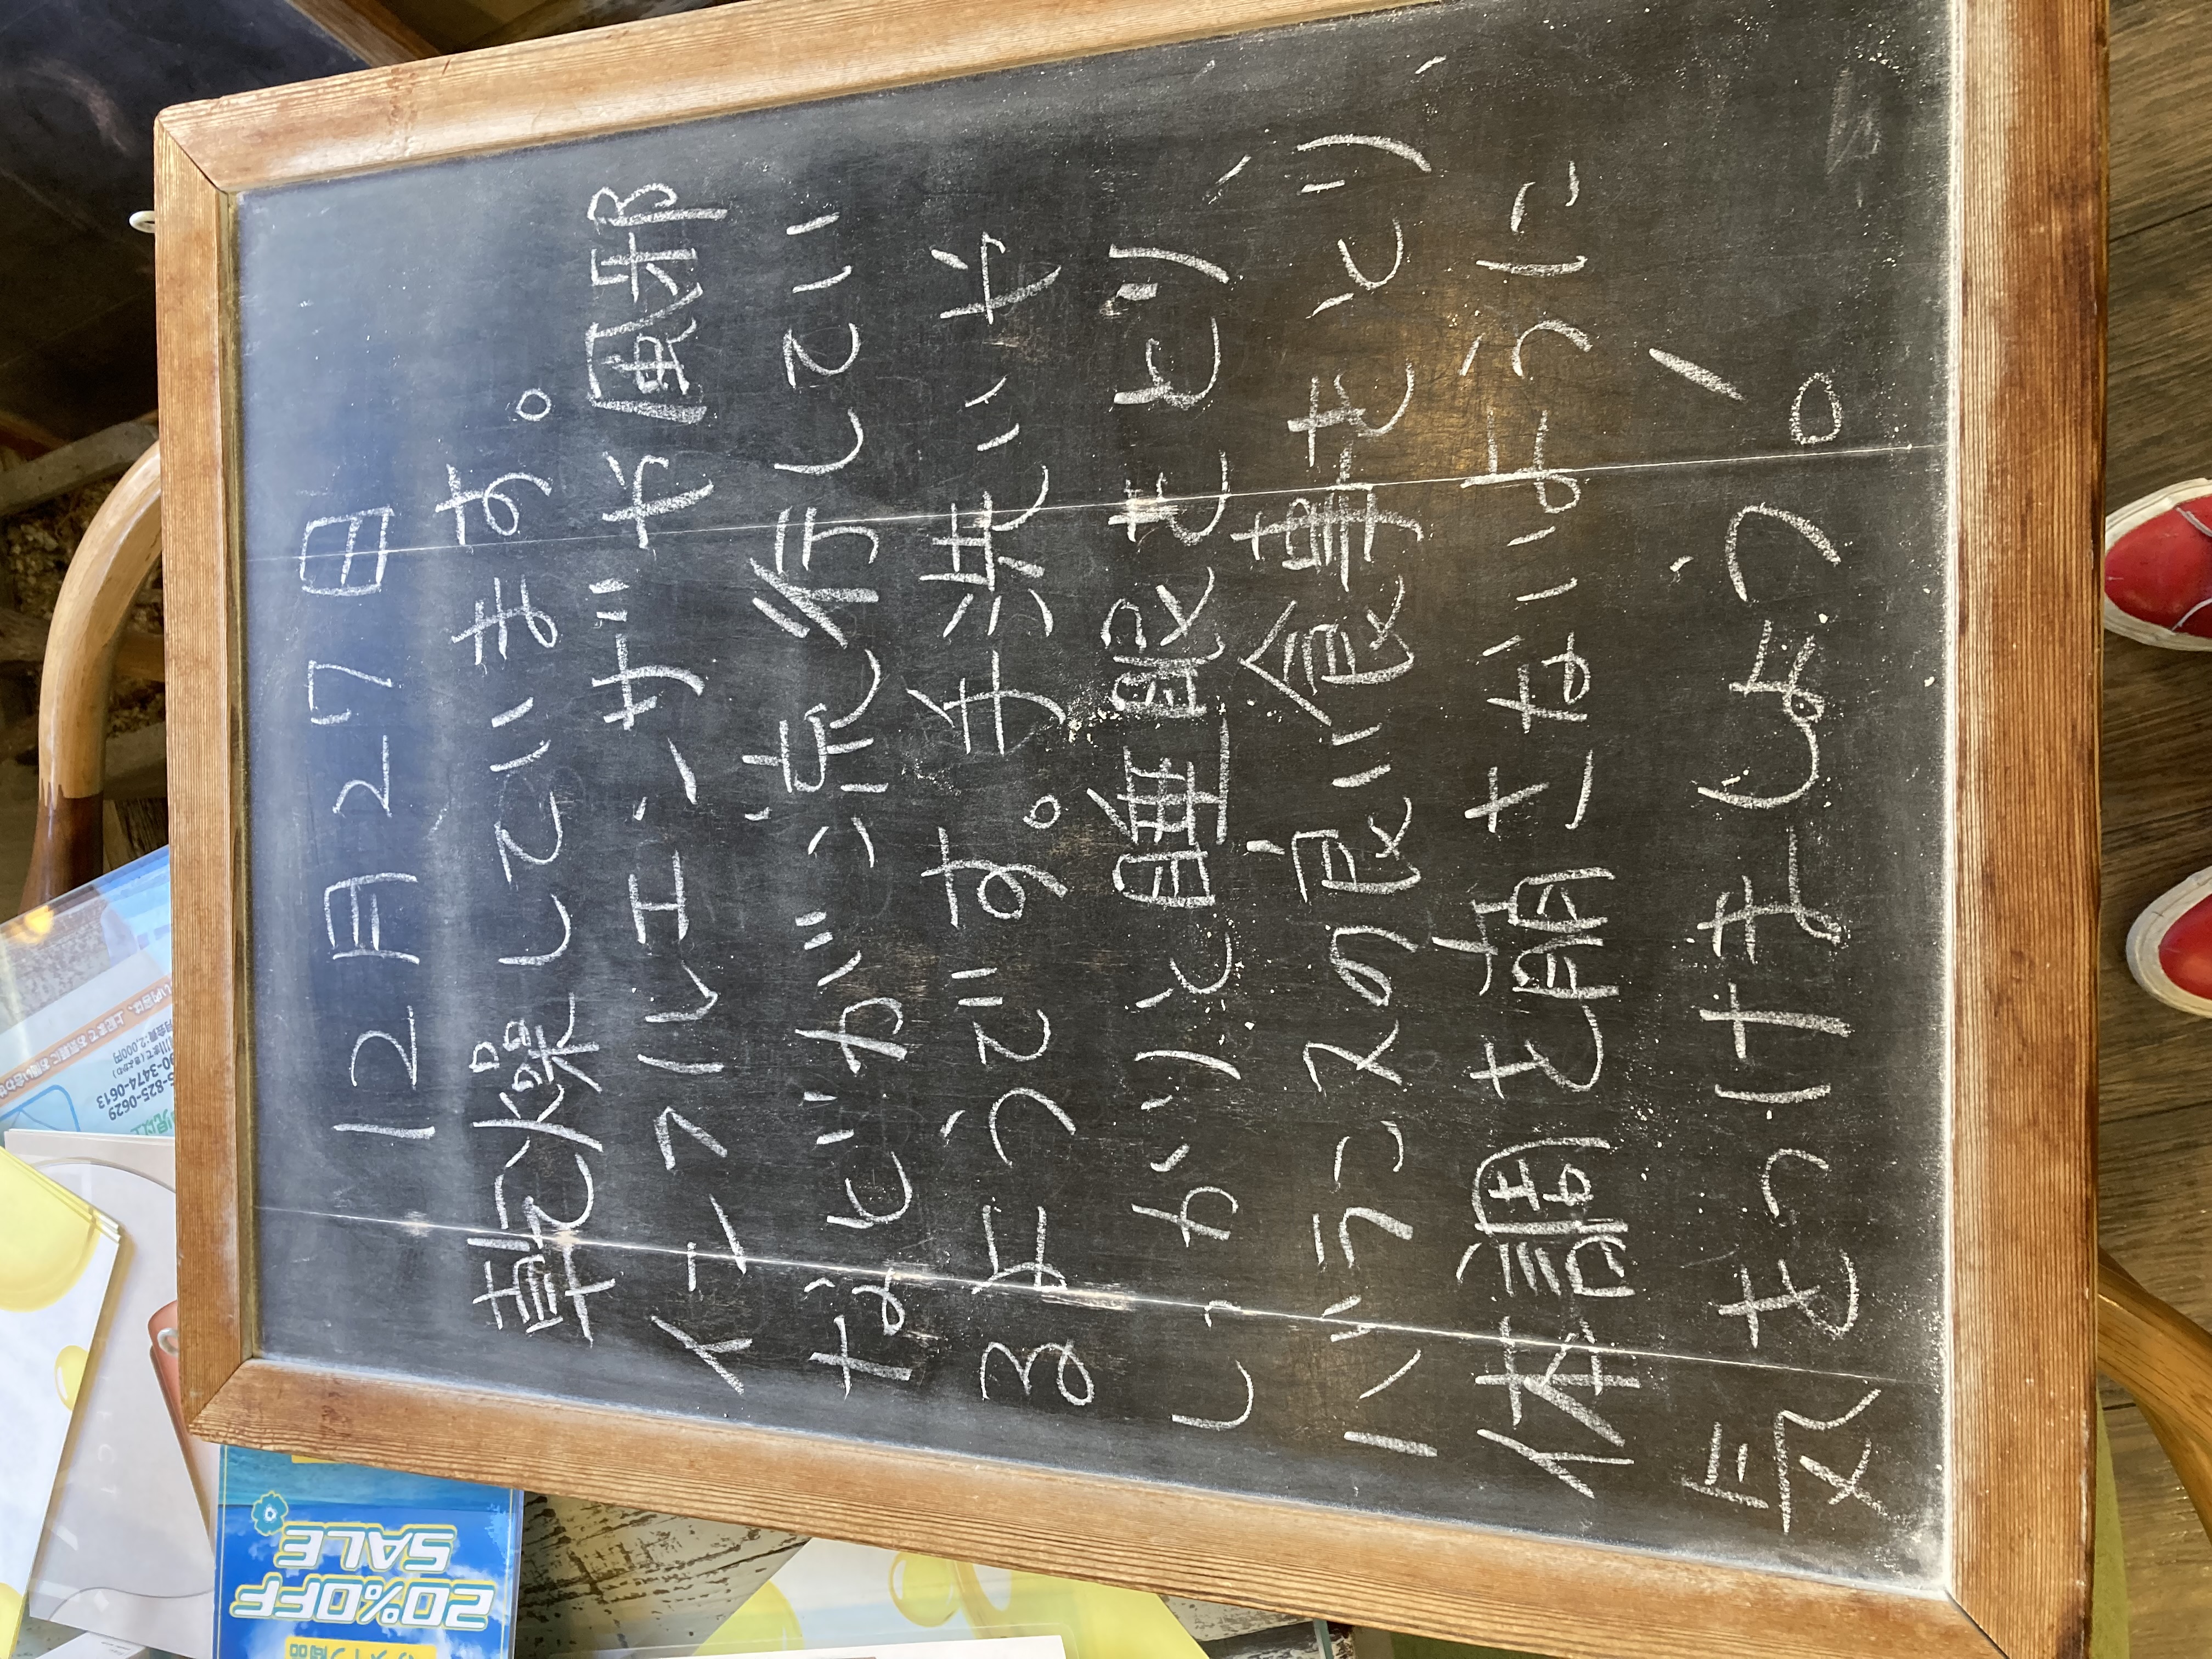 12月27日
乾燥しています。
インフルエンザや風邪
などが流行してい
るようです。手洗いや
しっかりと睡眠をとり、
バランスの良い食事をとり、
体調を崩さないように
気をつけましょう。
20%OFF
SALE
5-825-0629
90-3474-0613